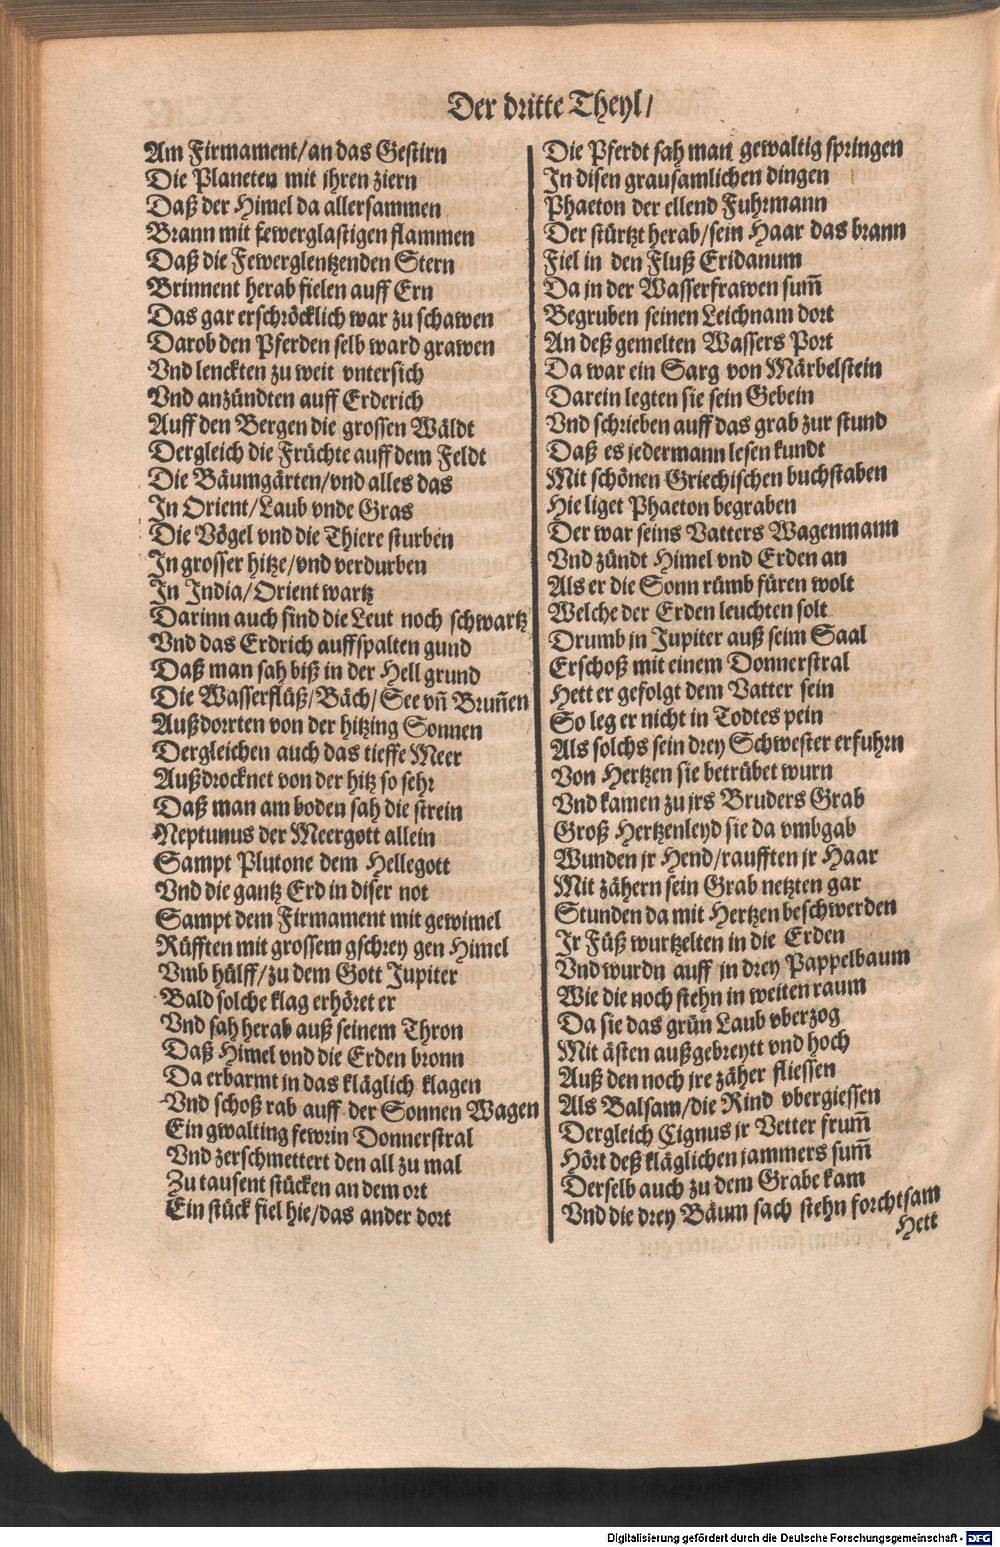 Der dritte Theyl/
Am Firmament/an das Gestirn
Die Planeten mit ihren ziern
Daß der Himel da allersammen
Brann mit fewerglastigen flammen
Daß die Fewerglentzenden Stern
Brinnent herab fielen auff Ern
Das gar erschröcklich war zu schawen
Darob den Pferden selb ward grawen
Vnd lenckten zu weit vntersich
Vnd anzündten auff Erderich
Auff den Bergen die grossen Wäldt
Dergleich die Früchte auff dem Feldt
Die Bäumgärten/vnd alles das
In Orient/Laub vnde Gras
Die Vögel vnd die Thiere sturben
In grosser hitze/vnd verdurben
In India/Orient wartz
Darinn auch sind die Leut noch schwartz
Vnd das Erdrich auffspalten gund
Daß man sah biß in der Hell grund
Die Wasserflüß/Bäch/See vn̄ Brun̄en
Außdorrten von der hitzing Sonnen
Dergleichen auch das tieffe Meer
Außdrocknet von der hitz so sehr
Daß man am boden sah die strein
Neptunus der Meergott allein
Sampt Plutone dem Hellegott
Vnd die gantz Erd in diser not
Sampt dem Firmament mit gewimel
Rüfften mit grossem gschrey gen Himel
Vmb hülff/zu dem Gott Jupiter
Bald solche klag erhöret er
Vnd sah herab auß seinem Thron
Daß Himel vnd die Erden bronn
Da erbarmt in das kläglich klagen
Vnd schoß rab auff der Sonnen Wagen
Ein gwalting fewrin Donnerstral
Vnd zerschmettert den all zu mal
Zu tausent stücken an dem ort
Ein stück fiel hie/das ander dort
Die Pferdt sah man gewaltig springen
In disen grausamlichen dingen
Phaeton der ellend Fuhrmann
Der stürtzt herab/sein Haar das brann
Fiel in den Fluß Eridanum
Da in der Wasserfrawen sum̄
Begruben seinen Leichnam dort
An deß gemelten Wassers Port
Da war ein Sarg von Märbelstein
Darein legten sie sein Gebein
Vnd schrieben auff das grab zur stund
Daß es jedermann lesen kundt
Mit schönen Griechischen buchstaben
Hie liget Phaeton begraben
Der war seins Vatters Wagenmann
Vnd zündt Himel vnd Erden an
Als er die Sonn rümb füren wolt
Welche der Erden leuchten solt
Drumb jn Jupiter auß seim Saal
Erschoß mit einem Donnerstral
Hett er gefolgt dem Vatter sein
So leg er nicht in Todtes pein
Als solchs sein drey Schwester erfuhrn
Von Hertzen sie betrübet wurn
Vnd kamen zu jrs Bruders Grab
Groß Hertzenleyd sie da vmbgab
Wunden jr Hend/raufften jr Haar
Mit zähern sein Grab netzten gar
Stunden da mit Hertzen beschwerden
Ir Füß wurtzelten in die Erden
Vnd wurdn auff in drey Pappelbaum
Wie die noch stehn in weiten raum
Da sie das grün Laub vberzog
Mit ästen außgebreytt vnd hoch
Auß den noch jre zäher fliessen
Als Balsam/die Rind vbergiessen
Dergleich Cignus jr Vetter frum̄
Hört deß kläglichen jammers sum̄
Derselb auch zu dem Grabe kam
Vnd die drey Bäum sach stehn forchtsam
Hett
Digitalisierung gefördert durch die Deutsche Forschungsgemeinschaft - DFG